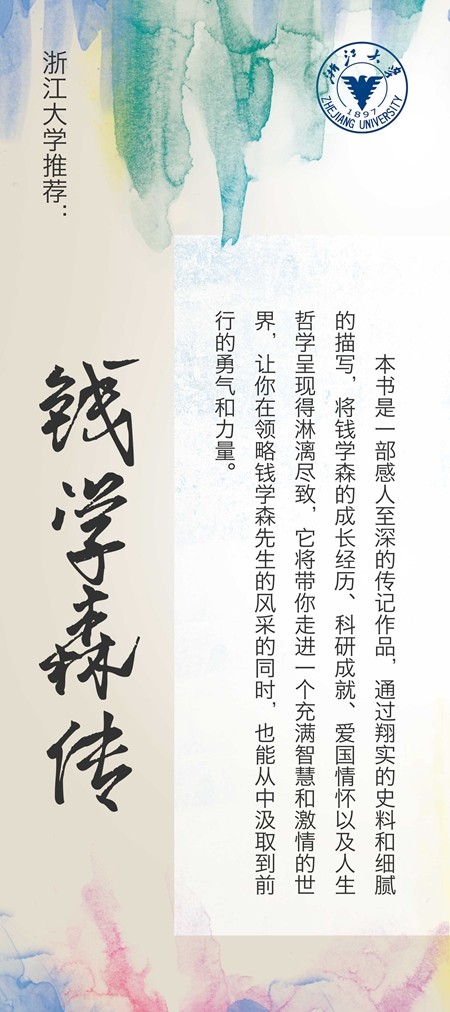 浙江大学推荐：
浙江大學
1897
ZHEJIANG UNIVERSITY
钱学森传
本书是一部感人至深的传记作品，通过翔实的史料和细腻
的描写，将钱学森的成长经历、科研成就、爱国情怀以及人生
哲学呈现得淋漓尽致，它将带你走进一个充满智慧和激情的世
界，让你在领略钱学森先生的风采的同时，也能从中汲取到前
行的勇气和力量。